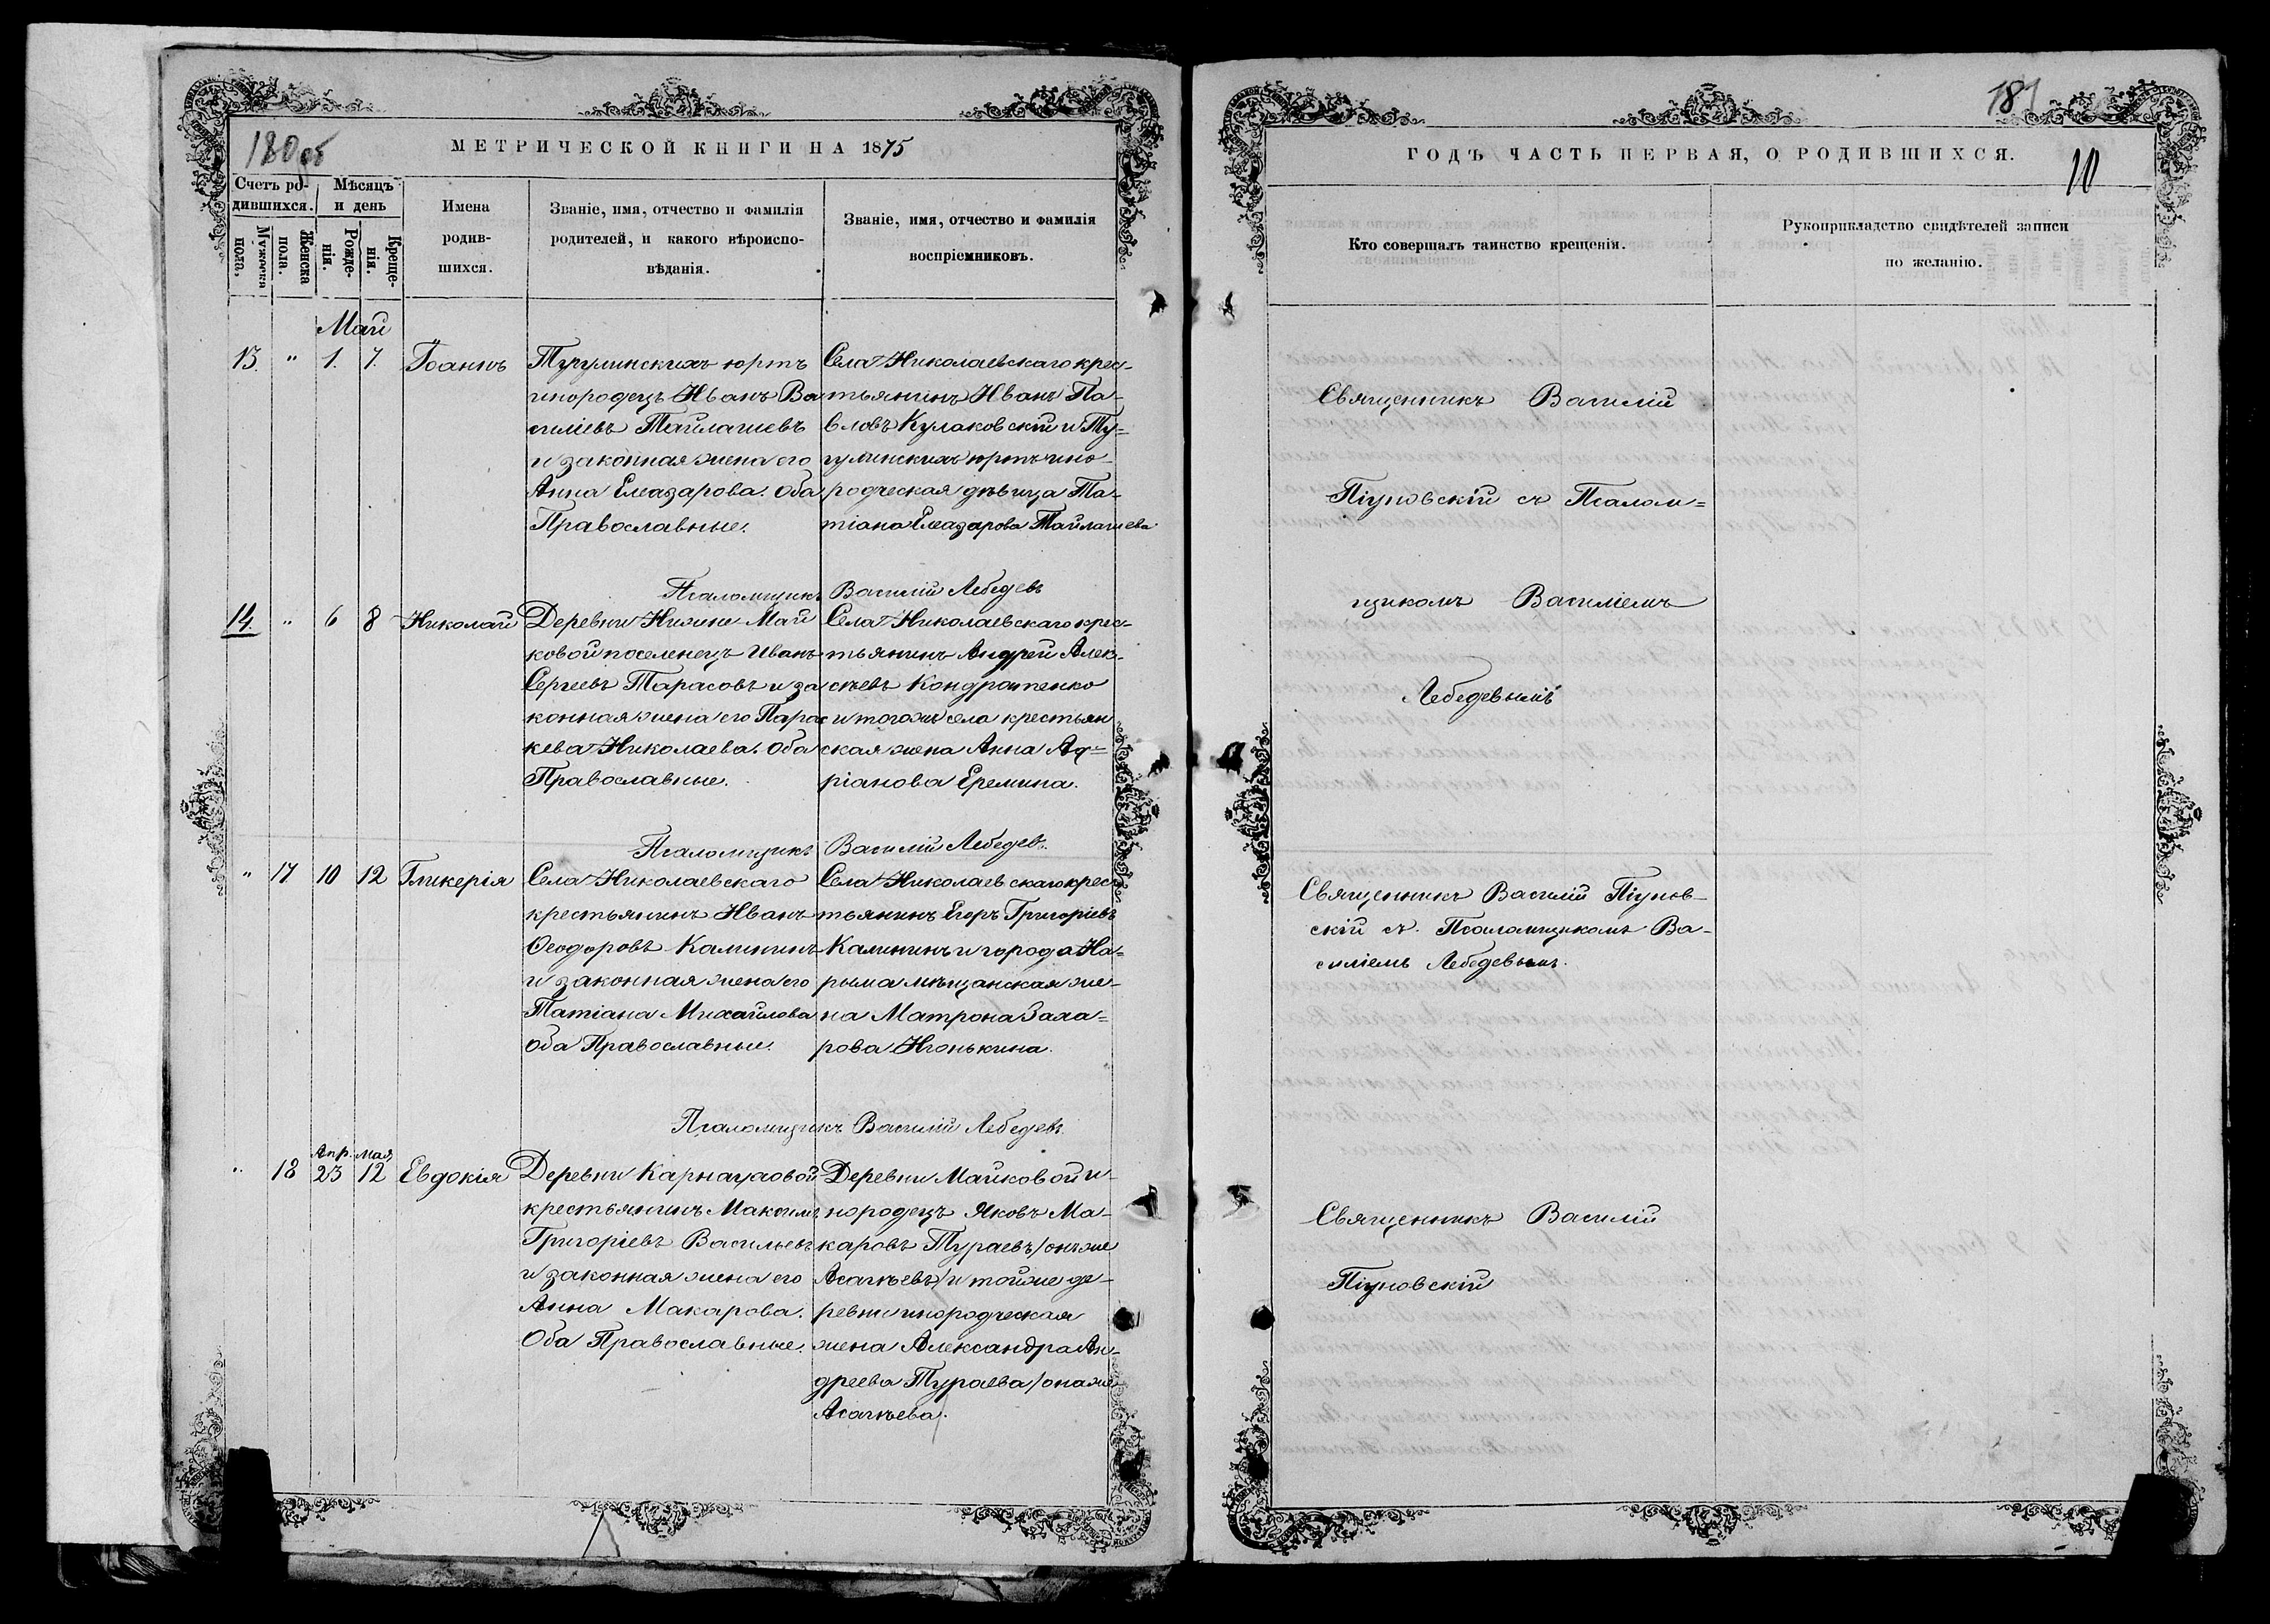 180 об
МЕТРИЧЕСКОЙ КНИГИ НА 1875
Счетъ ро-
дившихся.
Мѣсяцъ
и день
Мужеска
пола.
Женска
пола.
Рожде-
нія.
Креще-
нія.
Имена
родив-
шихся.
Званіе, имя, отчество и фамилія
родителей, и какого вѣроиспо-
вѣданія.
Званіе, имя, отчество и фамилія
воспріемниковъ.
Май
13. " 1. 7. Іоаннъ
Тугулинскихъ юртъ
инородецъ Иванъ Ва
силіевъ Тайлашевъ
и законная жена его
Анна Елеазарова. Оба
Православные.
Села Николаевскаго крес-
тьянинъ Иванъ Па-
вловъ Кулаковскій и Ту=
гулинскихъ юртъ ино-
родческая дѣвица Та-
тіана Елеазарова Тайлашева.
Псаломщикъ Василій Лебедевъ
14. " 6 8 Николай
Деревни Нижне Май
ковой поселенецъ Иванъ
Сергеевъ Тарасовъ и за
конная жена его Парас
кева Николаева. Оба
Православные.
Села Николаевскаго крес-
тьянинъ Андрей Алек-
сѣевъ Кондратенко
и того же села крестьян
ская жена Анна Ад=
ріанова Еремина.
Псаломщикъ Василій Лебедевъ.
" 17 10 12 Гликерія
Села Николаевскаго
крестьянинъ Иванъ
Ѳеодоровъ Калининъ
и законная жена его
Татіана Михайлова
Оба Православные.
Села Николаевскаго крес
тьянинъ Егоръ Григоріевъ
Калининъ и города На=
рыма мѣщанская же-
на Матрона Заха=
рова Нюнькина.
Псаломщикъ Василій Лебедевъ
Апр. Мая
" 18 23 12 Евдокія
Деревни
крестьянинъ Максимъ
Григоріевъ Васильевъ
и законная жена его
Анна Макарова.
Оба Православные.
Деревни Майковой и-
нородецъ Яковъ Ма-
каровъ Тураевъ /онъ же
и той же де-
ревни инородческая
жена Александра Ан-
дреева Тураева /она же
181
ГОДЪ ЧАСТЬ ПЕРВАЯ, О РОДИВШИХСЯ.
10
Кто совершалъ таинство крещенія.
Рукоприкладство свидѣтелей записи
по желанію.
Священникъ Василій
Піуновскій съ Псалом=
щикомъ Василіемъ
Лебедевымъ
Священникъ Василій Піунов-
скій съ Псаломщикомъ Ва-
силіемъ Лебедевымъ.
Священникъ Василій
Піуновскій